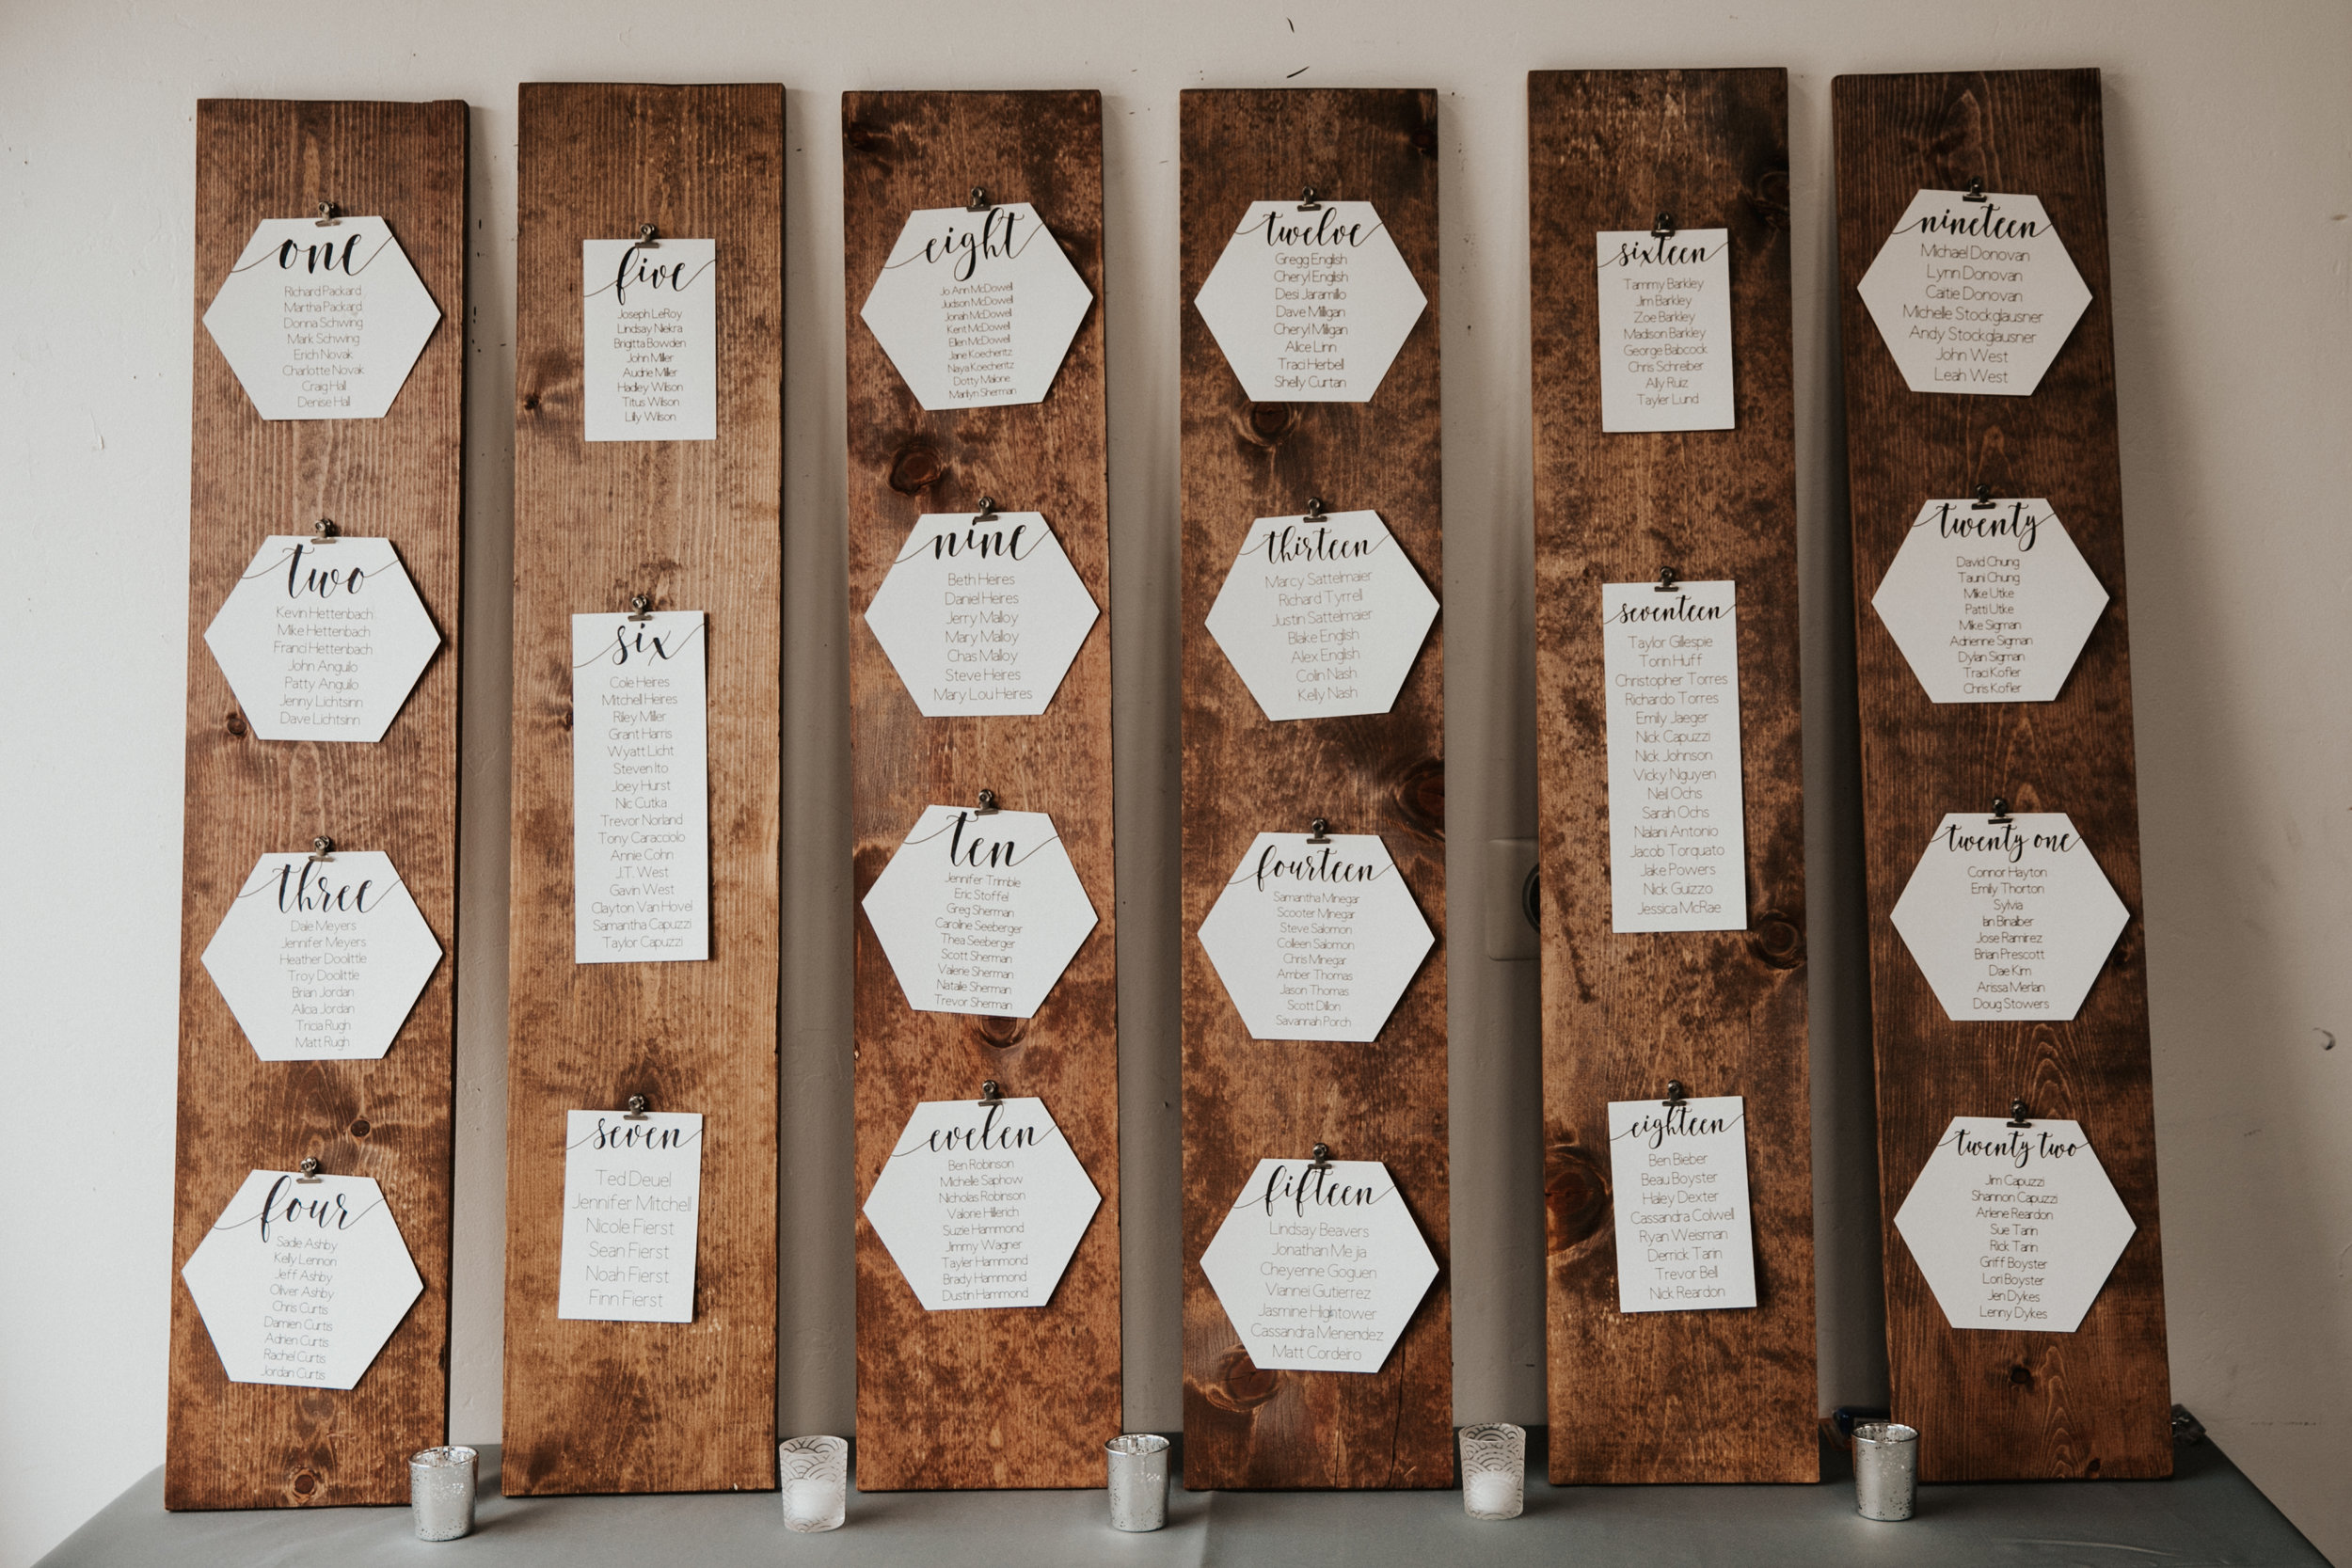 one
Richard Packard
Martha Packard
Donna Schwing
Mark Schwing
Erich Novak
Charlotte Novak
Craig Hall
Denise Hall
two
Kevin Hettenbach
Mike Hettenbach
Franci Hettenbach
John Anguilo
Patty Anguilo
Jenny Lichtsinn
Dave Lichtsinn
three
Dale Meyers
Jennifer Meyers
Heather Doolittle
Troy Doolittle
Brian Jordan
Alicia Jordan
Tricia Rugh
Matt Rugh
four
Sadie Ashby
Kelly Lennon
Jeff Ashby
Oliver Ashby
Chris Curtis
Damien Curtis
Adrien Curtis
Rachel Curtis
Jordan Curtis
five
Joseph LeRoy
Lindsay Niekra
Brigitta Bowden
John Miller
Audrie Miller
Hadley Wilson
Titus Wilson
Lilly Wilson
six
Cole Heires
Mitchell Heires
Riley Miller
Grant Harris
Wyatt Licht
Steven Ito
Joey Hurst
Nic Cutka
Trevor Norland
Tony Caracciolo
Annie Cohn
J.T. West
Gavin West
Clayton Van Hovel
Samantha Capuzzi
Taylor Capuzzi
seven
Ted Deuel
Jennifer Mitchell
Nicole Fierst
Sean Fierst
Noah Fierst
Finn Fierst
eight
Jo Ann McDowell
Judson McDowell
Jonah McDowell
Kent McDowell
Ellen McDowell
Jane Koecheritz
Naya Koecheritz
Dotty Malone
Marilyn Sherman
nine
Beth Heires
Daniel Heires
Jerry Malloy
Mary Malloy
Chas Malloy
Steve Heires
Mary Lou Heires
ten
Jennifer Trimble
Eric Stoffel
Greg Sherman
Caroline Seeberger
Thea Seeberger
Scott Sherman
Valerie Sherman
Natalie Sherman
Trevor Sherman
evelen
Ben Robinson
Michelle Saphow
Nicholas Robinson
Valorie Hillerich
Suzie Hammond
Jimmy Wagner
Tayler Hammond
Brady Hammond
Dustin Hammond
twelve
Gregg English
Cheryl English
Desi Jaramillo
Dave Milligan
Cheryl Milligan
Alice Linn
Traci Herbell
Shelly Curtan
thirteen
Marcy Sattelmaier
Richard Tyrrell
Justin Sattelmaier
Blake English
Alex English
Colin Nash
Kelly Nash
fourteen
Samantha Minegar
Scooter Minegar
Steve Salomon
Colleen Salomon
Chris Minegar
Amber Thomas
Jason Thomas
Scott Dillon
Savannah Porch
fifteen
Lindsay Beavers
Jonathan Mejia
Cheyenne Goguen
Viannei Gutierrez
Jasmine Hightower
Cassandra Menendez
Matt Cordeiro
sixteen
Tammy Barkley
Jim Barkley
Zoe Barkley
Madison Barkley
George Babcock
Chris Schreiber
Ally Ruiz
Tayler Lund
seventeen
Taylor Gillespie
Torin Huff
Christopher Torres
Richardo Torres
Emily Jaeger
Nick Capuzzi
Nick Johnson
Vicky Nguyen
Neil Ochs
Sarah Ochs
Nalani Antonio
Jacob Torquato
Jake Powers
Nick Guizzo
Jessica McRae
eighteen
Ben Bieber
Beau Boyster
Haley Dexter
Cassandra Colwell
Ryan Weisman
Derrick Tarin
Trevor Bell
Nick Reardon
nineteen
Michael Donovan
Lynn Donovan
Caitie Donovan
Michelle Stockglausner
Andy Stockglausner
John West
Leah West
twenty
David Chung
Tauni Chung
Mike Utke
Patti Utke
Mike Sigman
Adrienne Sigman
Dylan Sigman
Traci Kofler
Chris Kofler
twenty one
Connor Hayton
Emily Thorton
Sylvia
Ian Binalber
Jose Ramirez
Brian Prescott
Dae Kim
Arissa Merlan
Doug Stowers
twenty two
Jim Capuzzi
Shannon Capuzzi
Arlene Reardon
Sue Tarin
Rick Tarin
Griff Boyster
Lori Boyster
Jen Dykes
Lenny Dykes